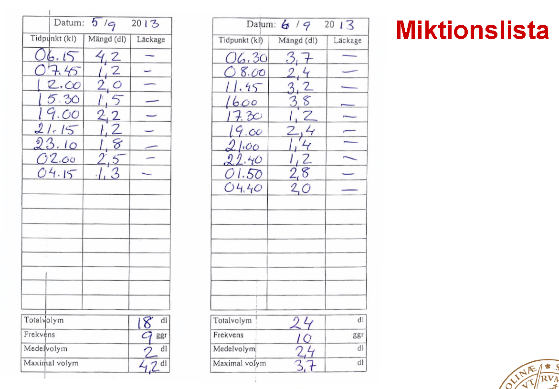 Miktionslista
Datum: 5/9 2013
Tidpunkt (kl) Mängd (dl) Läckage
06.15 4,2 –
07.45 1,2 –
12.00 2,0 –
15.30 1,5 –
19.00 2,2 –
21.15 1,2 –
23.10 1,8 –
02.00 2,5 –
04.15 1,3 –
Totalvolym 18 dl
Frekvens 9 ggr
Medelvolym 2 dl
Maximal volym 4,2 dl
Datum: 6/9 2013
Tidpunkt (kl) Mängd (dl) Läckage
06.30 3,7 –
08.00 2,4 –
11.45 3,2 –
16.00 3,8 –
17.30 1,2 –
19.00 2,4 –
21.00 1,4 –
22.40 1,2 –
01.50 2,8 –
04.40 2,0 –
Totalvolym 24 dl
Frekvens 10 ggr
Medelvolym 2,4 dl
Maximal volym 3,7 dl